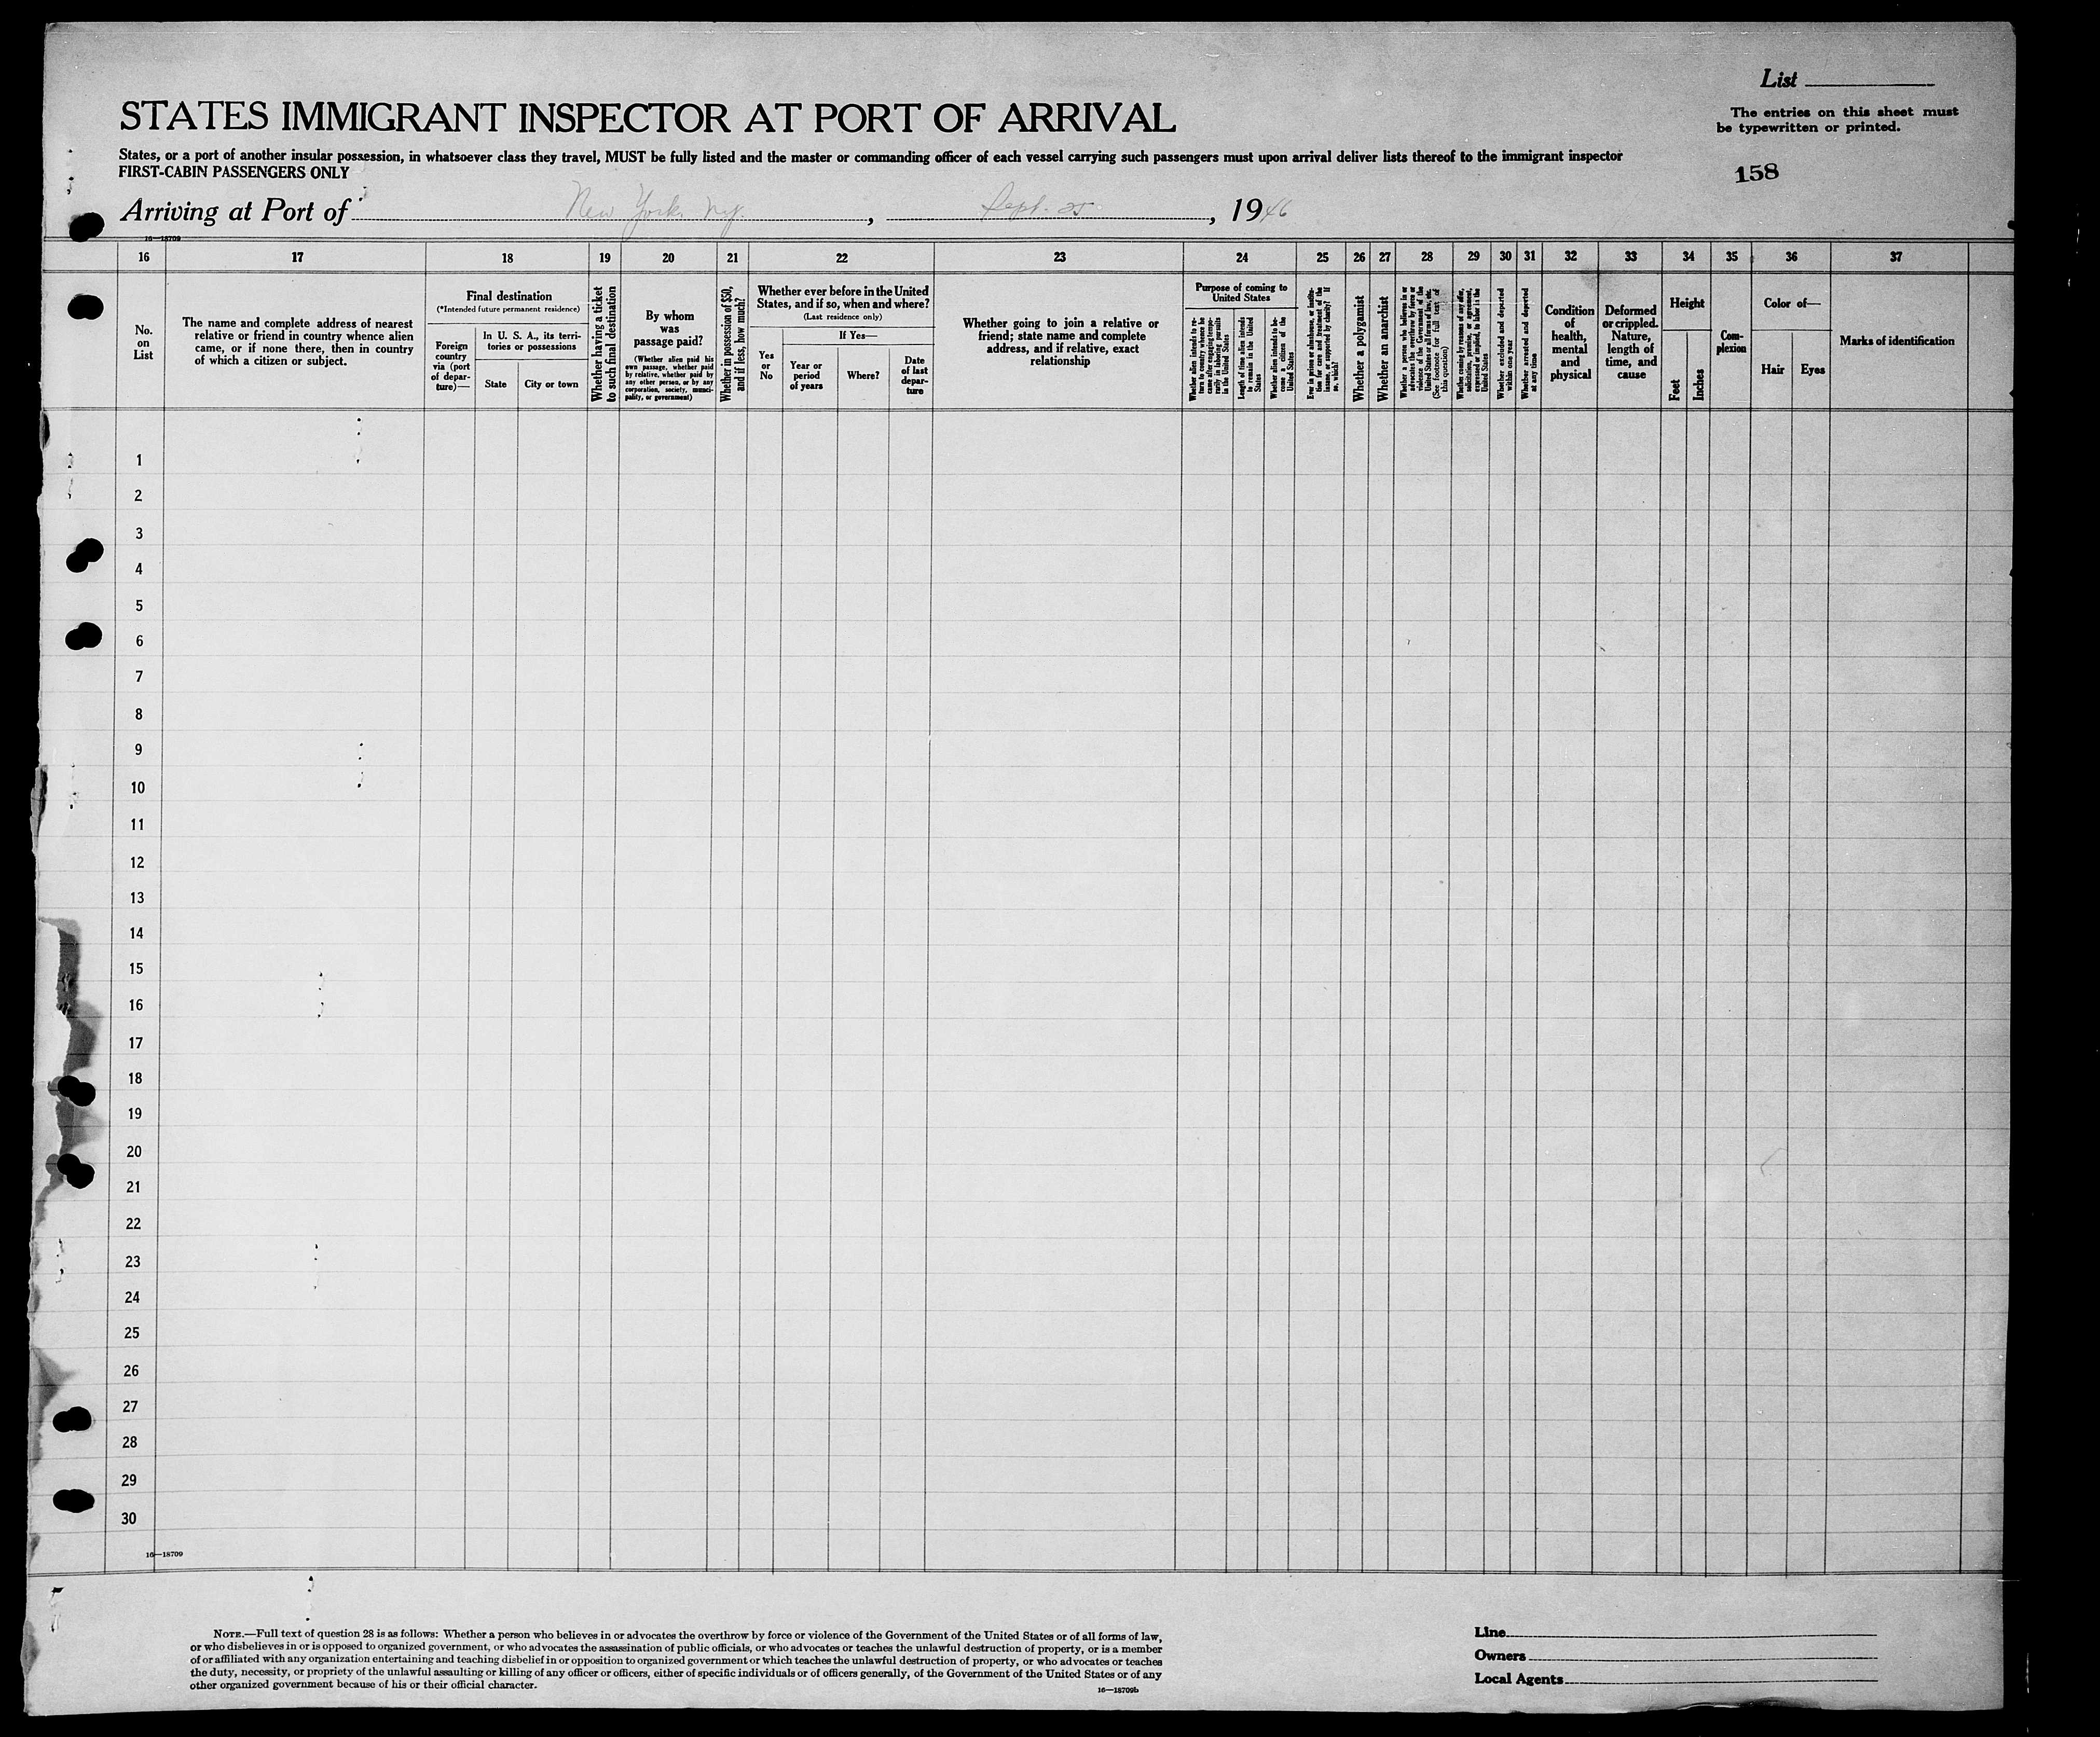 List
STATES IMMIGRANT INSPECTOR AT PORT OF ARRIVAL
The entries on this sheet must
be typewritten or printed.
States, or a port of another insular possession, in whatsoever class they travel, MUST be fully listed and the master or commanding officer of each vessel carrying such passengers must upon arrival deliver lists thereof to the immigrant inspector
FIRST-CABIN PASSENGERS ONLY
158
Arriving at Port of New York, N.Y. , Sept. 25 , 1946
16—18709
16 17 18 19 20 21 22 23 24 25 26 27 28 29 30 31 32 33 34 35 36 37
No.
on
List
The name and complete address of nearest
relative or friend in country whence alien
came, or if none there, then in country
of which a citizen or subject.
Final destination
(*Intended future permanent residence)
Foreign
country
via (port
of depar-
ture)—
In U. S. A., its terri-
tories or possessions
State
City or town
Whether having a ticket
to such final destination
By whom
was
passage paid?
(Whether alien paid his
own passage, whether paid
by relative, whether paid by
any other person, or by any
corporation, society, munici-
pality, or government)
Whether in possession of $50,
and if less, how much?
Whether ever before in the United
States, and if so, when and where?
(Last residence only)
Yes
or
No
If Yes—
Year or
period
of years
Where?
Date
of last
depar-
ture
Whether going to join a relative or
friend; state name and complete
address, and if relative, exact
relationship
Purpose of coming to
United States
Whether alien intends to re-
turn to country whence he
came after engaging tempo-
rarily in laboring pursuits
in the United States
Length of time alien intends
to remain in the United
States
Whether alien intends to be-
come a citizen of the
United States
Ever in prison or almshouse, or institu-
tion for care and treatment of the
insane, or supported by charity? If
so, which?
Whether a polygamist
Whether an anarchist
Whether a person who believes in or
advocates the overthrow by force or
violence of the Government of the
United States or all forms of law, etc.
(See footnote for full text of
this question)
Whether coming by reason of any offer,
solicitation, promise, or agreement,
expressed or implied, to labor in the
United States
Whether excluded and deported
within one year
Whether arrested and deported
at any time
Condition
of
health,
mental
and
physical
Deformed
or crippled.
Nature,
length of
time, and
cause
Height
Feet
Inches
Com-
plexion
Color of—
Hair
Eyes
Marks of identification
1
2
3
4
5
6
7
8
9
10
11
12
13
14
15
16
17
18
19
20
21
22
23
24
25
26
27
28
29
30
16—18709
NOTE.—Full text of question 28 is as follows: Whether a person who believes in or advocates the overthrow by force or violence of the Government of the United States or of all forms of law,
or who disbelieves in or is opposed to organized government, or who advocates the assassination of public officials, or who advocates or teaches the unlawful destruction of property, or is a member
of or affiliated with any organization entertaining and teaching disbelief in or opposition to organized government or which teaches the unlawful destruction of property, or who advocates or teaches
the duty, necessity, or propriety of the unlawful assaulting or killing of any officer or officers, either of specific individuals or of officers generally, of the Government of the United States or of any
other organized government because of his or their official character.
16—18709b
Line
Owners
Local Agents